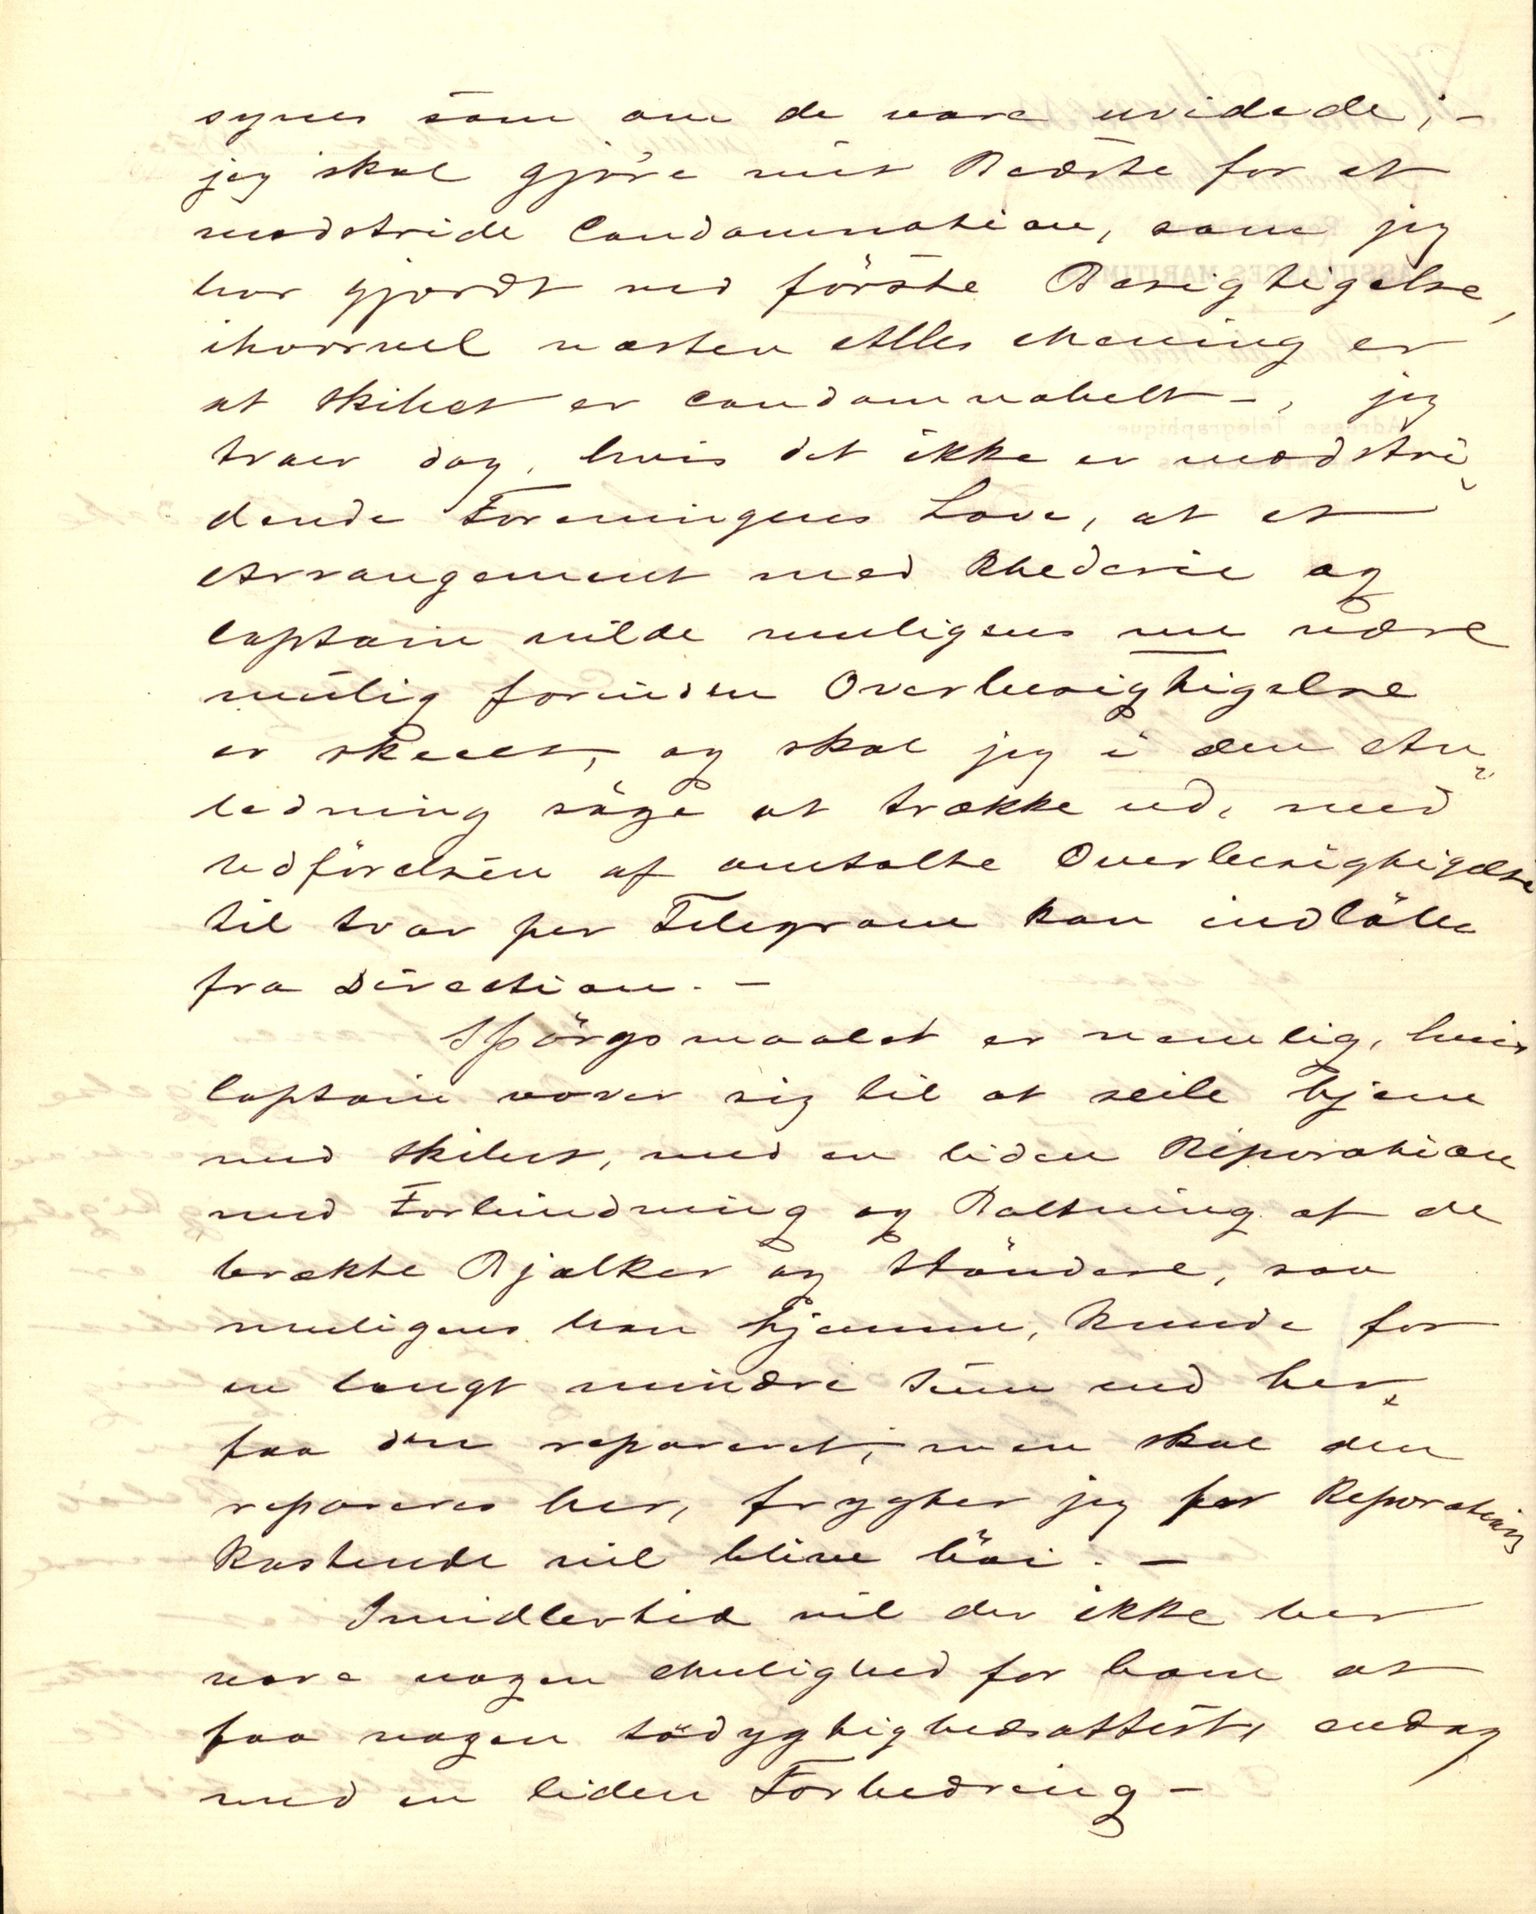 synes som om de vare uvidede; –
jeg skal gjöre mit Bedste for at
modstride Condamnation, som jeg
har gjordt ved förste Besigtigelse,
ihvorvel næsten Alles Mening er
at Skibet er Condamnabelt –, jeg
troer dog, hvis det ikke er modstri-
dende Foreningens Love, at et
Arrangement med Rhederie og
Captain vilde muligens nu være
mulig forinden Overbesigtigelse
er skeet, og skal jeg i den An-
ledning söge at trække ud, med
Udförelsen af omtalte Overbesigtigelse
til Svar per Telegram kan indlöbe
fra Direction. –
Spörgsmaalet er nemlig, hvis
Captain vover sig til at seile hjem
med Skibet, med en liden Reparation
med Forbindning og Boltning af de
brækte Bjelker og Stöndere, saa
muligens han hjemme, kunde for
en langt mindre Sum end her
faa den reparert; men skal den
repareres her, frygter jeg for Reparations
Kostende vil blive höi. –
Imidlertid vil der ikke her
være nogen Mulighed for ham at
faa nogen Södygtighedsattest, endog
med en liden Forbedring –
ASSURANCES MARITIMES
Adresse Telegraphique: